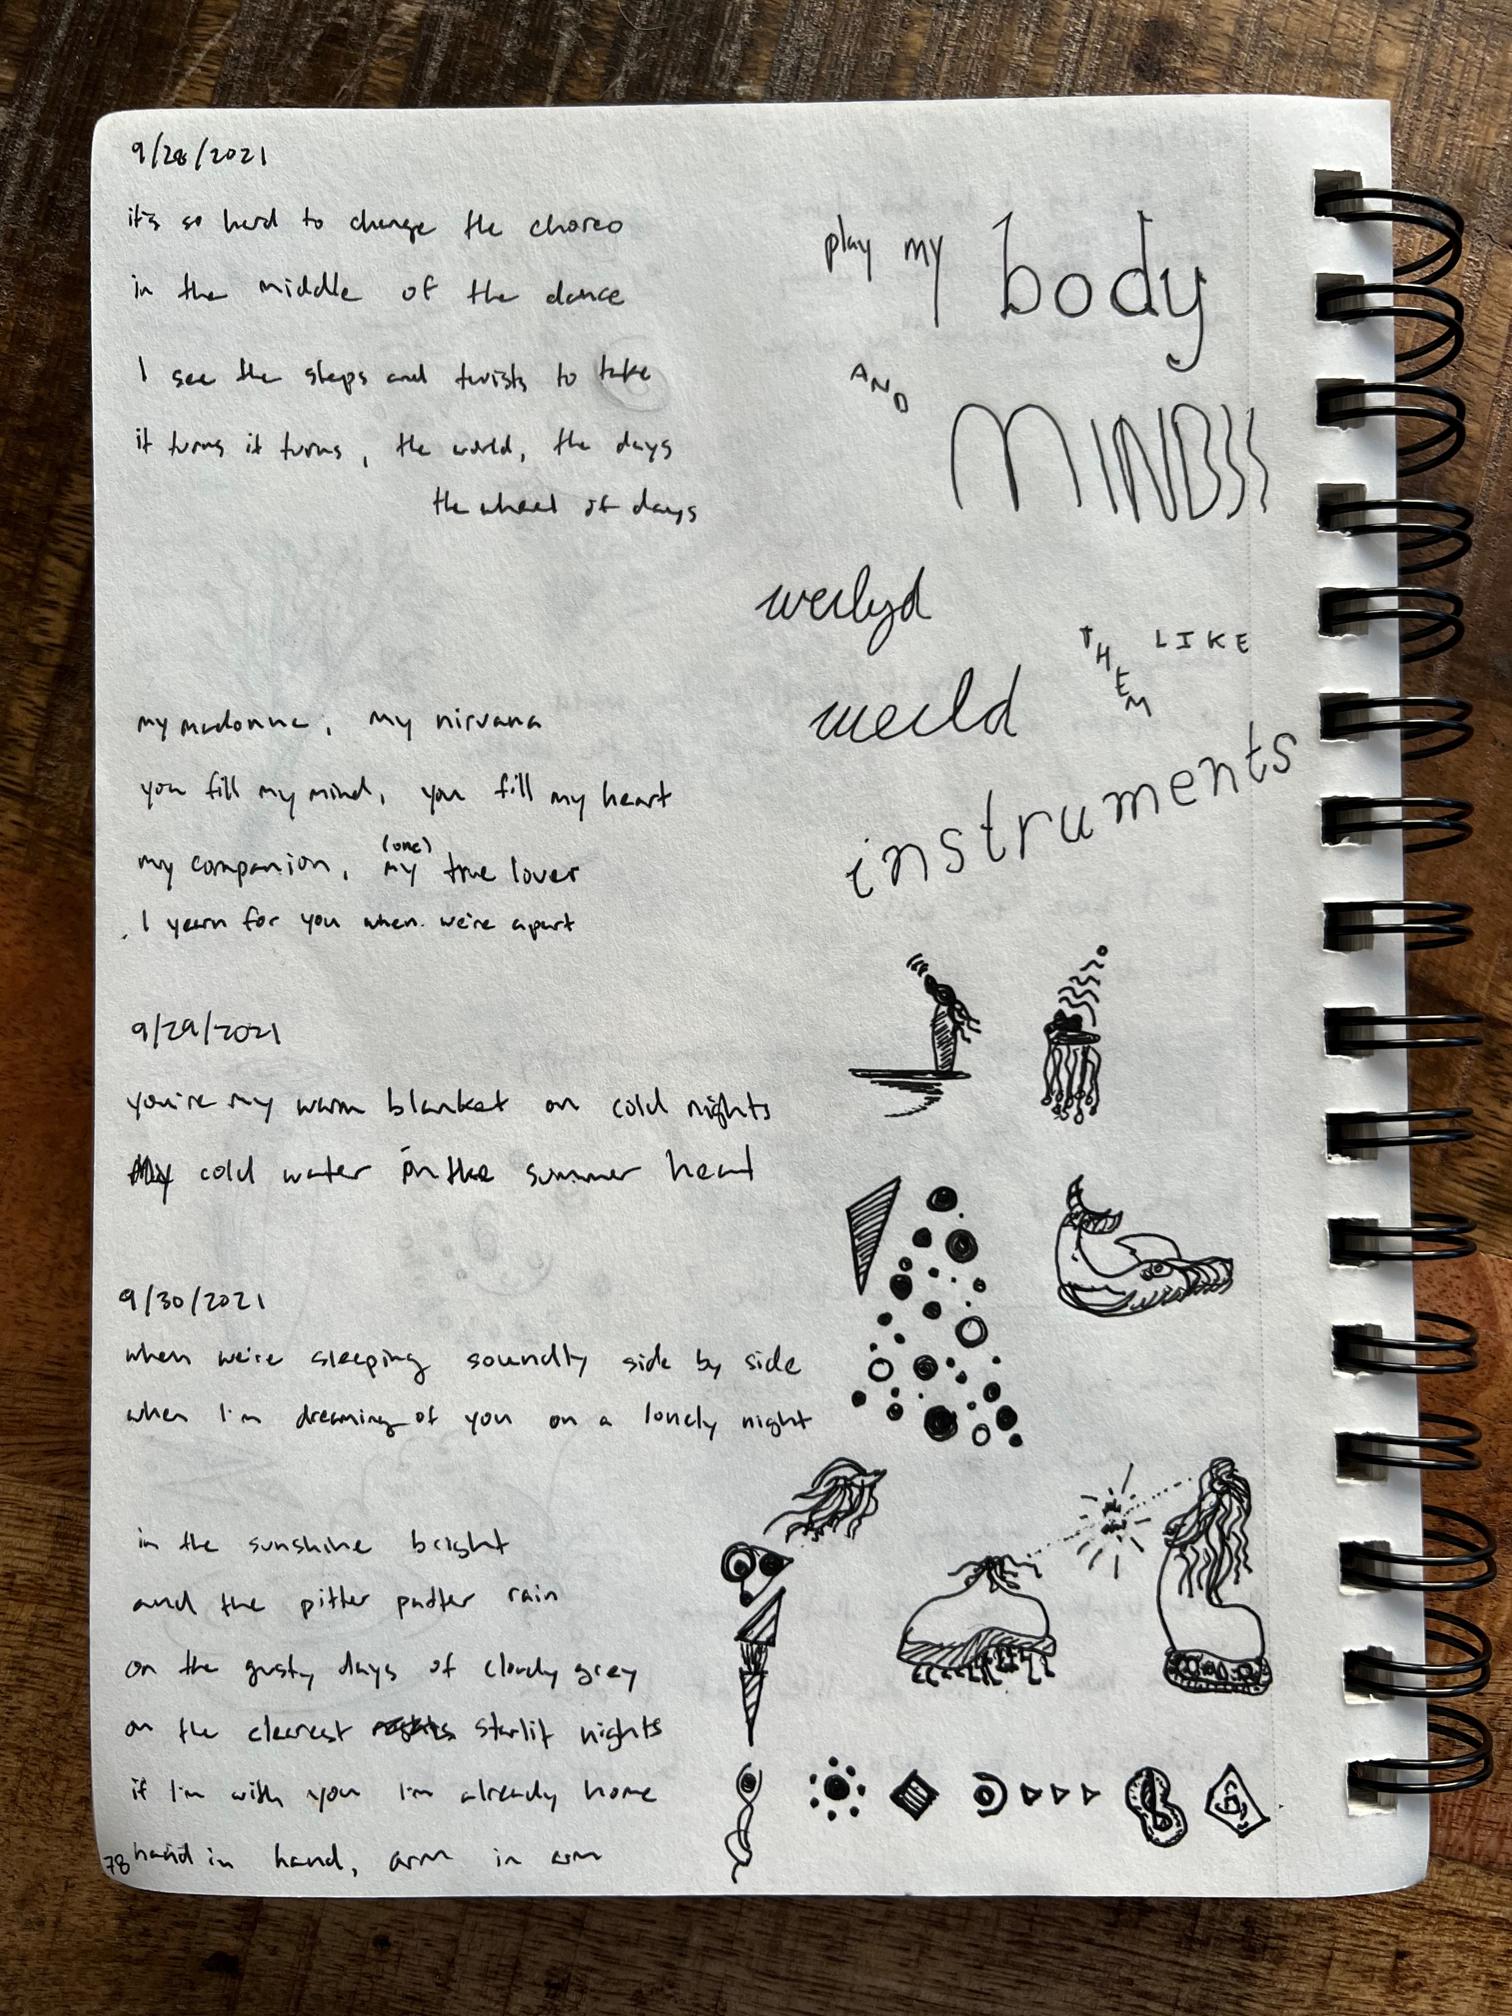 9/28/2021
it's so hard to change the choreo
in the middle of the dance
I see the steps and twists to take
it turns it turns, the world, the days
the wheel of days
my madonna, my nirvana
you fill my mind, you fill my heart
(one)
my companion, my true lover
I yearn for you when we're apart
9/29/2021
you're my warm blanket on cold nights
My cold water in the summer heat
9/30/2021
when we're sleeping soundly side by side
when I'm dreaming of you on a lonely night
in the sunshine bright
and the pitter patter rain
on the gusty days of cloudy grey
on the clearest nights starlit nights
if I'm with you I'm already home
78 hand in hand, arm in arm
play my body
AND
MINDSS
weilyd
weild THEM LIKE
instruments